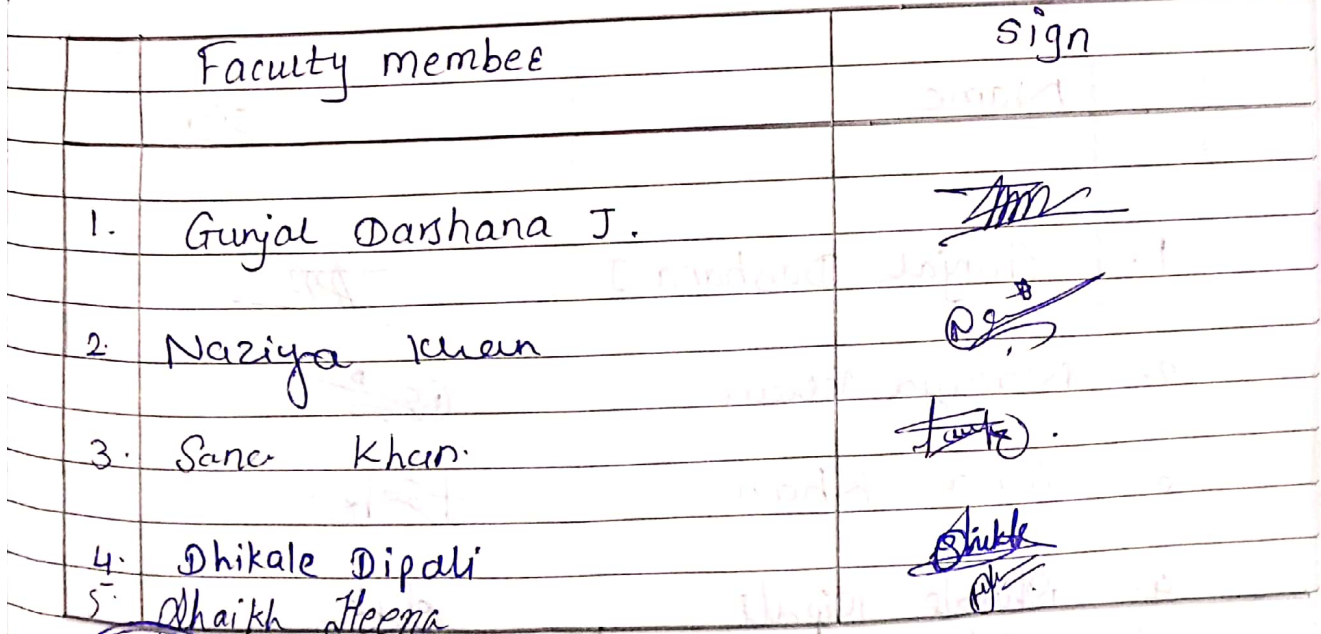 Faculty member sign
1. Gunjal Darshana J.
2. Naziya Khan
3. Sana Khan.
4. Dhikale Dipali
5. Shaikh Heena